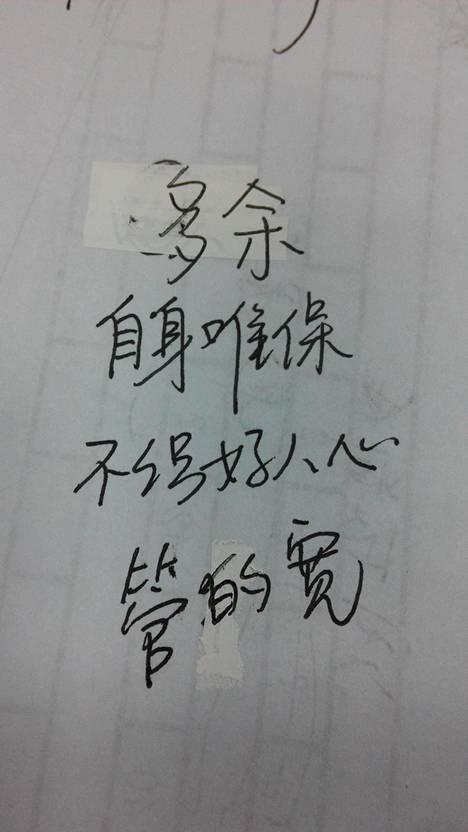 多余
自身唯保
不得好人心
管的宽